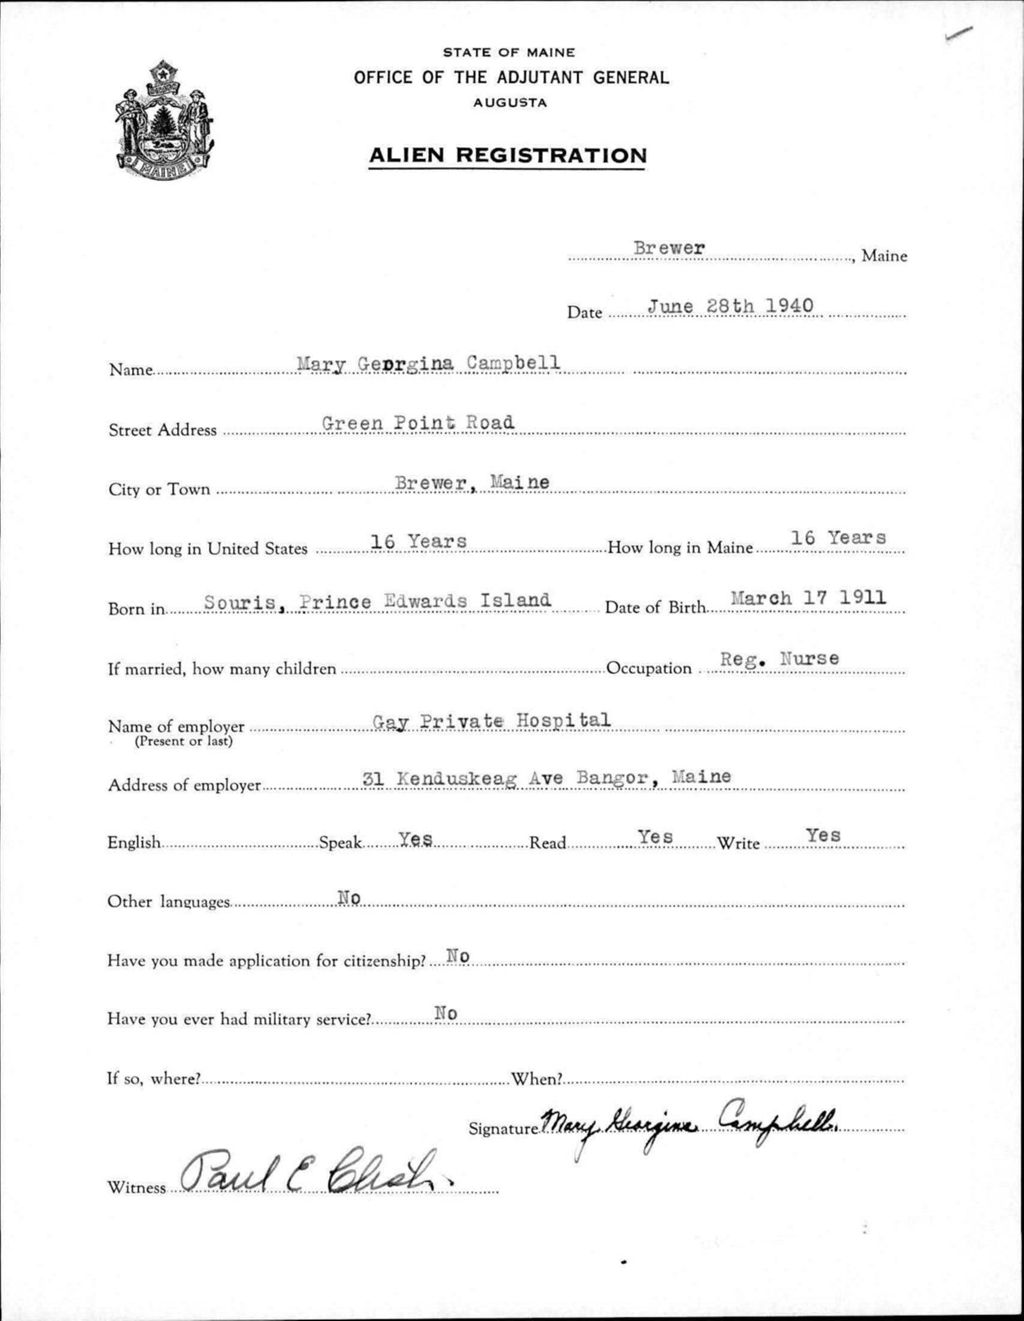 STATE OF MAINE
OFFICE OF THE ADJUTANT GENERAL
AUGUSTA
ALIEN REGISTRATION
MAINE
Brewer, Maine
Date June 28th 1940
Name Mary Georgina Campbell
Street Address Green Point Road
City or Town Brewer, Maine
How long in United States 16 Years How long in Maine 16 Years
Born in Souris, Prince Edwards Island Date of Birth March 17 1911
If married, how many children Occupation Reg. Nurse
Name of employer Gay Private Hospital
(Present or last)
Address of employer 31 Kenduskeag Ave Bangor, Maine
English Speak Yes Read Yes Write Yes
Other languages No
Have you made application for citizenship? No
Have you ever had military service? No
If so, where? When?
Signature Mary Georgina Campbell.
Witness Paul E